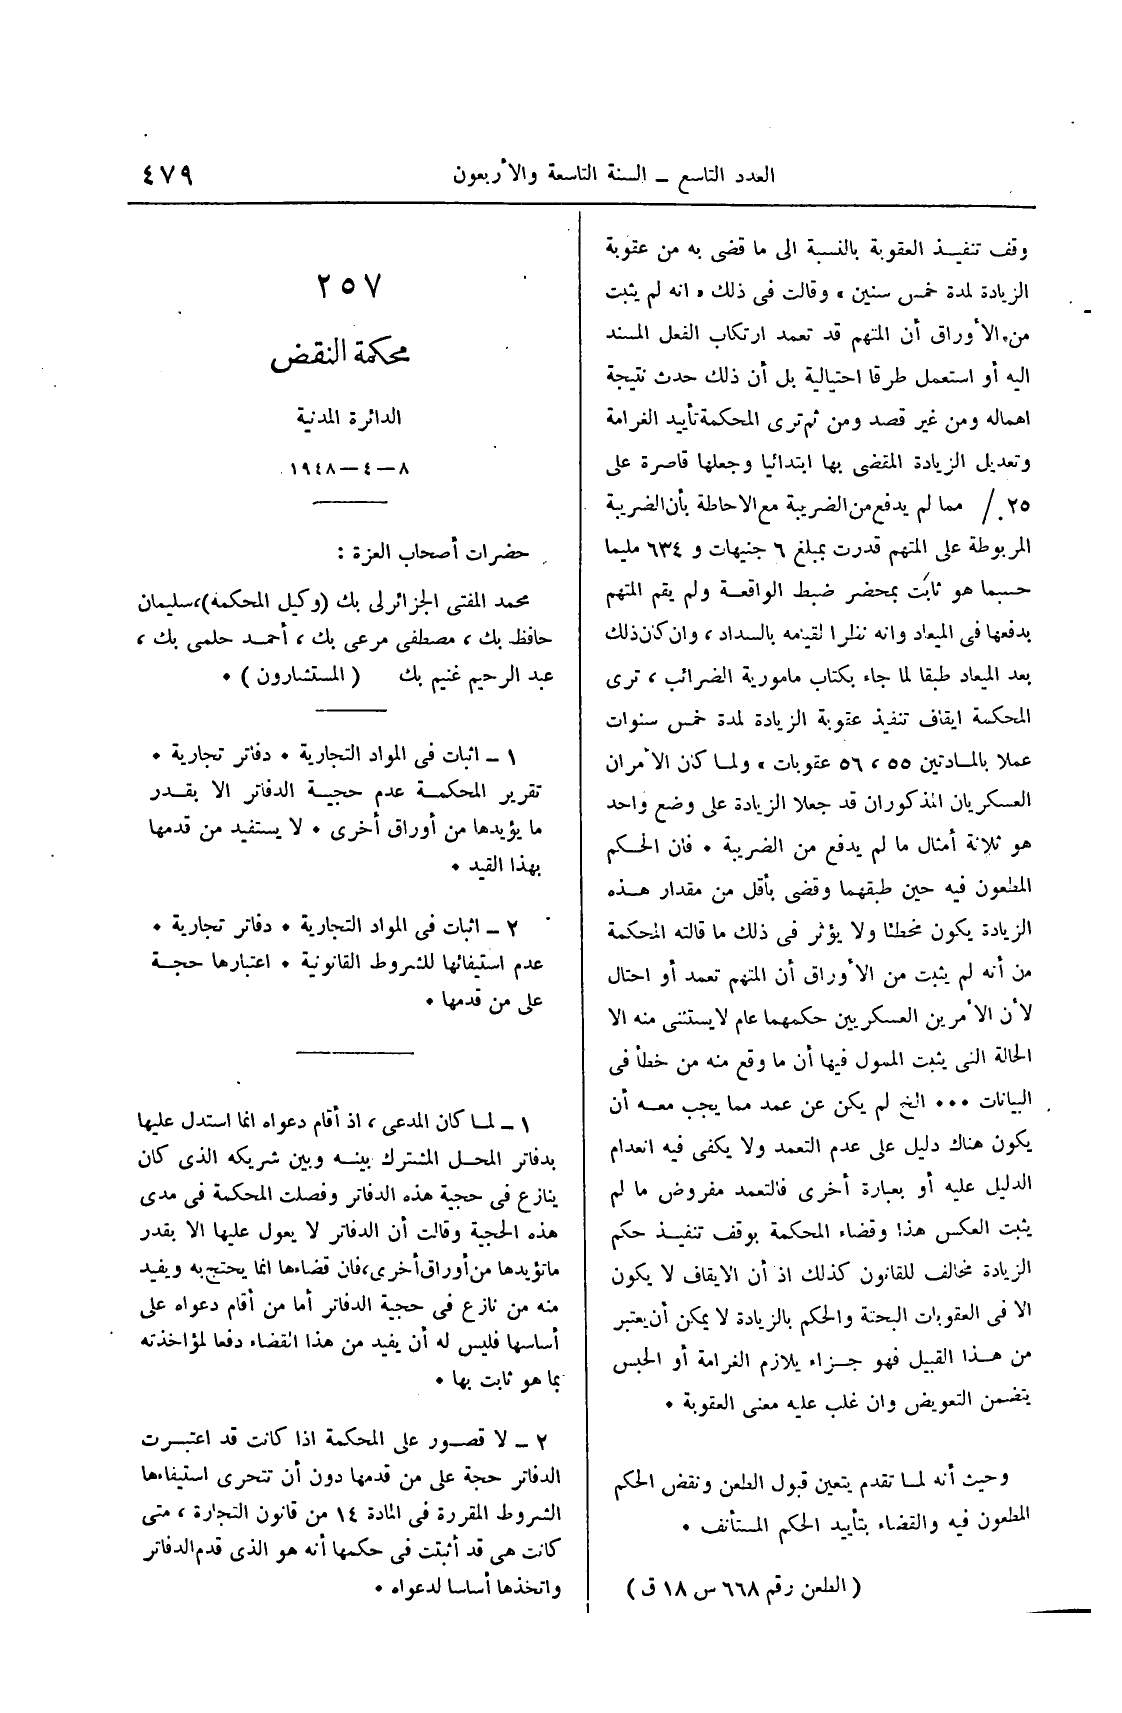 العدد التاسع – السنة التاسعة والأربعون
٤٧٩
وقف تنفيذ العقوبة بالنسبة الى ما قضى به من عقوبة
الزيادة لمدة خمس سنين » وقالت فى ذلك « انه لم يثبت
من الأوراق أن المتهم قد تعمد ارتكاب الفعل المسند
اليه أو استعمل طرقا احتيالية بل أن ذلك حدث نتيجة
اهماله ومن غير قصد ومن ثم ترى المحكمة تأييد الغرامة
وتعديل الزيادة المقضى بها ابتدائيا وجعلها قاصرة على
٢٥٪ مما لم يدفع من الضريبة مع الاحاطة بأن الضريبة
المربوطة على المتهم قدرت بمبلغ ٦ جنيهات و ٦٣٤ مليما
حسبما هو ثابت بمحضر ضبط الواقعة ولم يقم المتهم
بدفعها فى الميعاد وانه نظرا لقيامه بالسداد ، وان كان ذلك
بعد الميعاد طبقا لما جاء بكتاب مامورية الضرائب ، ترى
المحكمة ايقاف تنفيذ عقوبة الزيادة لمدة خمس سنوات
عملا بالمادتين ٥٥ ، ٥٦ عقوبات » ولما كان الأمران
العسكريان المذكوران قد جعلا الزيادة على وضع واحد
هو ثلاثة أمثال ما لم يدفع من الضريبة • فان الحكم
المطعون فيه حين طبقهما وقضى بأقل من مقدار هذه
الزيادة يكون مخطئا ولا يؤثر فى ذلك ما قالته المحكمة
من أنه لم يثبت من الأوراق أن المتهم تعمد أو احتال
لأن الأمرين العسكريين حكمهما عام لا يستثنى منه الا
الحالة التى يثبت الممول فيها أن ما وقع منه من خطأ فى
البيانات ••• الخ لم يكن عن عمد مما يجب معه أن
يكون هناك دليل على عدم التعمد ولا يكفى فيه انعدام
الدليل عليه أو بعبارة أخرى فالتعمد مفروض ما لم
يثبت العكس هذا وقضاء المحكمة بوقف تنفيذ حكم
الزيادة مخالف للقانون كذلك اذ أن الايقاف لا يكون
الا فى العقوبات البحتة والحكم بالزيادة لا يمكن أن يعتبر
من هذا القبيل فهو جزاء يلازم الغرامة أو الحبس
يتضمن التعويض وان غلب عليه معنى العقوبة •
وحيث أنه لما تقدم يتعين قبول الطعن ونقض الحكم
المطعون فيه والقضاء بتأييد الحكم المستأنف •
( الطعن رقم ٦٦٨ س ١٨ ق )
٢٥٧
محكمة النقض
الدائرة المدنية
٨ – ٤ – ١٩٤٨
حضرات أصحاب العزة :
محمد المفتى الجزائرلى بك (وكيل المحكمة)، سليمان
حافظ بك ، مصطفى مرعى بك ، أحمد حلمى بك ،
عبد الرحيم غنيم بك ( المستشارون ) •
١ – اثبات فى المواد التجارية • دفاتر تجارية •
تقرير المحكمة عدم حجية الدفاتر الا بقدر
ما يؤيدها من أوراق أخرى • لا يستفيد من قدمها
بهذا القيد •
٢ – اثبات فى المواد التجارية • دفاتر تجارية •
عدم استيفائها للشروط القانونية • اعتبارها حجة
على من قدمها •
١ – لما كان المدعى ، اذ أقام دعواه انما استدل عليها
بدفاتر المحل المشترك بينه وبين شريكه الذى كان
ينازع فى حجية هذه الدفاتر وفصلت المحكمة فى مدى
هذه الحجية وقالت أن الدفاتر لا يعول عليها الا بقدر
ما تؤيدها من أوراق أخرى، فان قضاءها انما يحتج به ويفيد
منه من نازع فى حجية الدفاتر أما من أقام دعواه على
أساسها فليس له أن يفيد من هذا القضاء دفعا لمؤاخذته
بما هو ثابت بها •
٢ – لا قصور على المحكمة اذا كانت قد اعتبرت
الدفاتر حجة على من قدمها دون أن تتحرى استيفاءها
الشروط المقررة فى المادة ١٤ من قانون التجارة ، متى
كانت هى قد أثبتت فى حكمها أنه هو الذى قدم الدفاتر
واتخذها أساسا لدعواه •